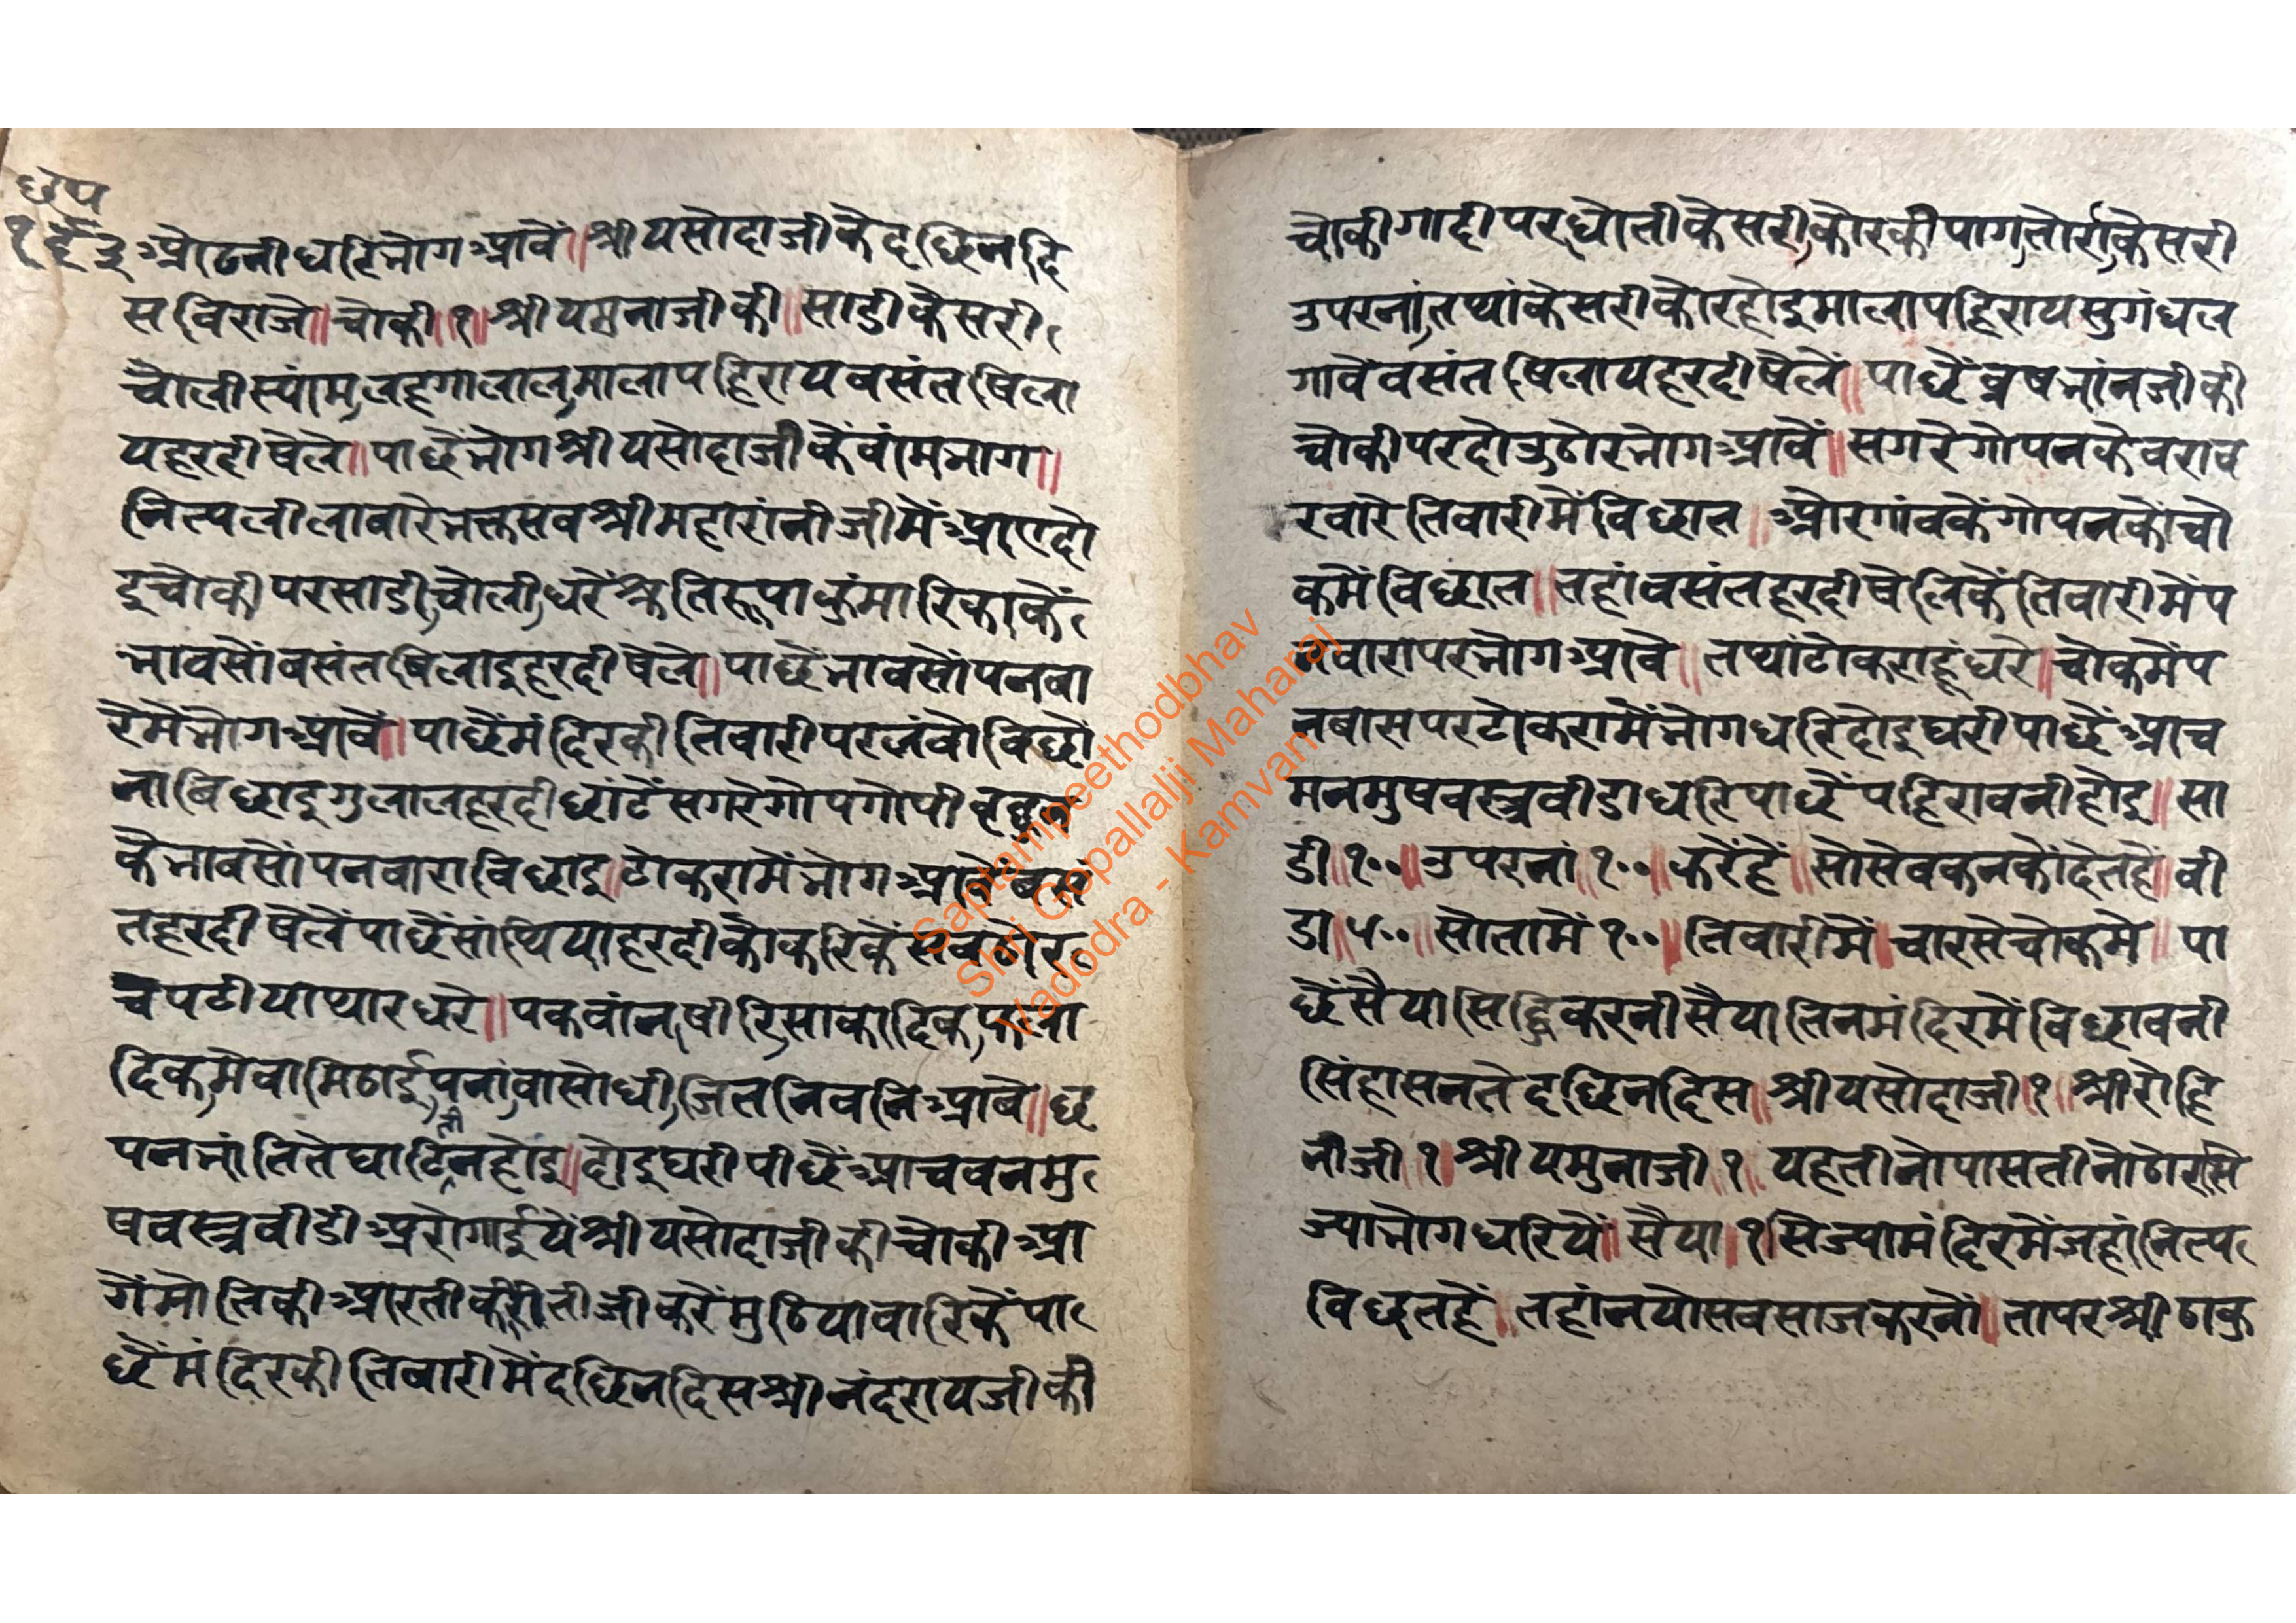 छप
१६३
ओढनी धरि भोग आवें॥ श्री यसोदाजी के दछिन दि
स विराजे॥ चोकी॥१॥ श्री यमनाजी की॥ साडी केसरी
चोली स्यांम, लहगा लाल, माला पहिराय वसंत षिला
य हरदी षेले॥ पाछें भोग श्री यसोदाजी कें वांम भाग॥
नित्य लीला वारे भक्त सव श्री महारांनीजी में आए दो
इ चोकी पर साडी, चोली, धरें श्रुतिरूपा कुंमारिका कें
भाव सों वसंत षिलाइ हरदी षेले॥ पाछें भाव सों पनवा
रे मे भोग आवें॥ पाछें मंदिर की तिवारी पर लंवो विछो
ना विछाइ गुलाल हरदी छांटें सगरे गोप गोपी
के भाव सों पनवारा विछाइ॥ टोकरा में भोग आवे वसं
त हरदी षेलें पाछें सांथिया हरदी कौ करिकें सव ठोर
चपटीया प्यार धरे॥ पकवांन, षीरि, साकादिक, फला
दिक, मेवा मिठाई, पनां, वासोधी, जित नि वनि आवे॥ छ
पन भांति ते घाटि न होइ॥ दोइ घरी पीछें आचवन मु
ती
षवस्त्र वीडी आरोगाईये श्री यसोदाजी की चोकी आ
गें मोति की आरती कीरतीजी करें मुठिया वारिकें पा
छें मंदिर की तिवारी में दछिन दिस श्री नंदरायजी की
चोकी गादी पर, धोती केसरी, कोर की पाग, तोर्रा, केसरी
उपरनां, तथां केसरी कोर होइ माला पहिराय सुगंध ल
गावें वसंत षिलाय हरदी षेलें॥ पाछें व्रषभांनजी की
चोकी पर दोउ ठोर भोग आवें॥ सगरे गोपन के वराव
र वारे तिवारी में विछात॥ ओर गांव कें गोपन कों चो
क में विछात॥ तहां वसंत हरदी षेलि कें तिवारी में प
नवारा पर भोग आवे॥ तथां टोकरा हूं धरे॥ चोक में प
नवास पर टोकरा में भोग धरि दोइ घरी पाछें आच
मन मुषवस्त्र वीडा धरि पाछें पहिरावनी होइ॥ सा
डी॥१००॥ उपरनां॥१००॥ करें हें॥ सो सेवकन कों देत हें॥ वी
डा॥५००॥ सोतामें १००॥ तिवारी में॥ चारसे चोक मे॥ पा
छें सैया सिद्धि करनी सैया तिन मंदिर में विछावनी
सिंहासन ते दछिन दिस॥ श्री यसोदाजी॥१॥ श्री रोहि
नीजी॥१॥ श्री यमुनाजी॥१॥ यह तीनो पास तीनो ठोर सि
ज्या भोग धरिये॥ सैया॥१॥ सिज्या मंदिर में जहां नित्य
विछत हें॥ तहां नयो सव साज करनों॥ ता पर श्री ठाकु